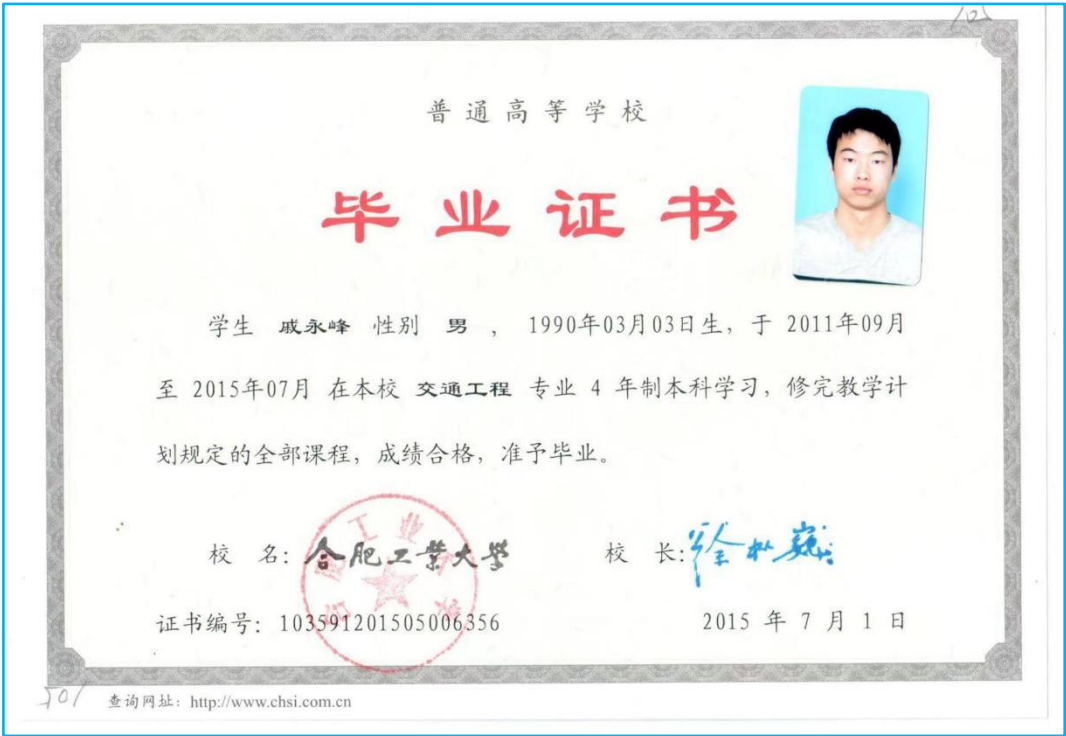 普通高等学校
毕业证书
学生 戚永峰 性别 男 , 1990年03月03日生, 于 2011年09月
至 2015年07月 在本校 交通工程 专业 4 年制本科学习, 修完教学计
划规定的全部课程, 成绩合格, 准予毕业。
校 名: 合肥工业大学
校 长:
证书编号: 103591201505006356
2015 年 7 月 1 日
查询网址: http://www.chsi.com.cn